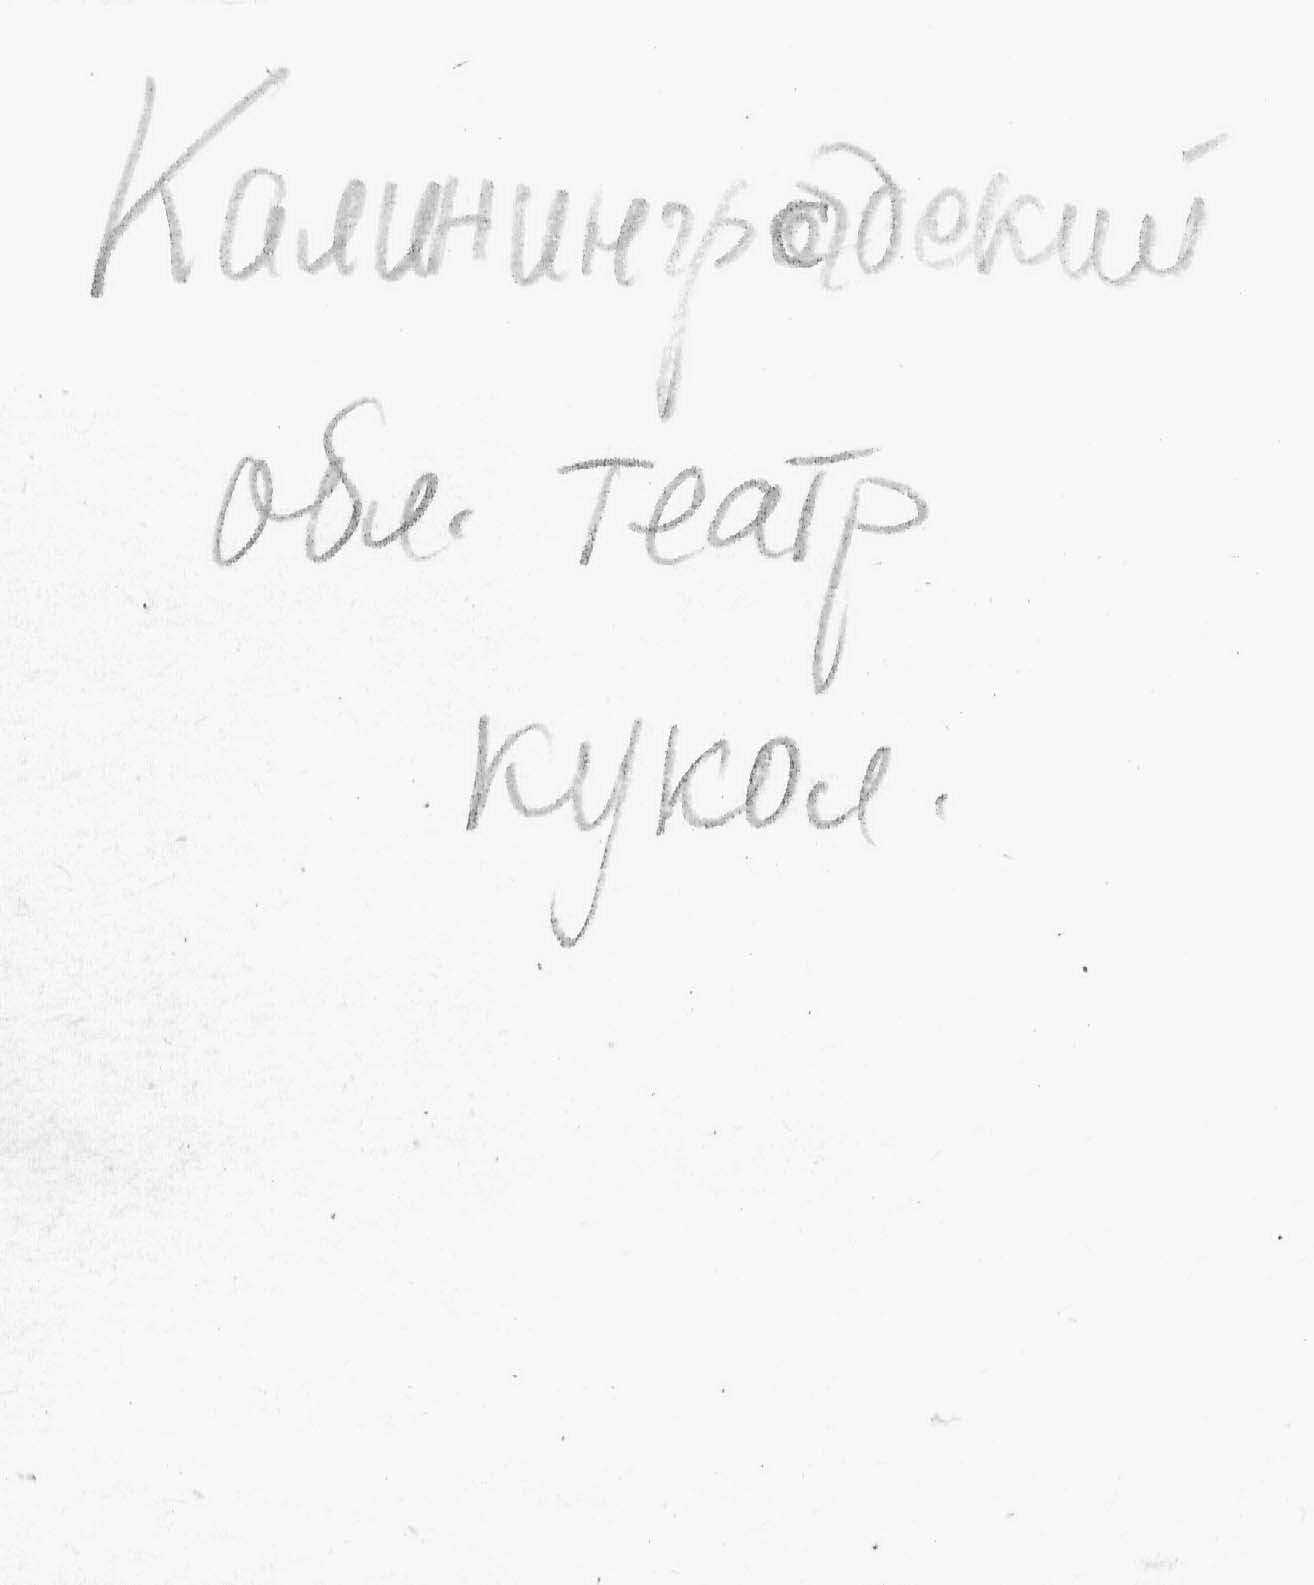 Калининградский
обл. театр
кукол.